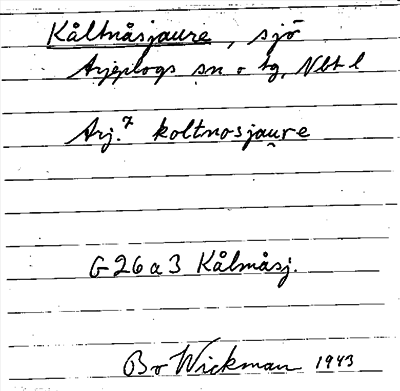 Kåltnåsjaure, sjö
Arjeplogs sn o tg, Nbt l
Arj.⁷ koltnosjau̯re
G26a3 Kålmåsj.
Bo Wickman 1943